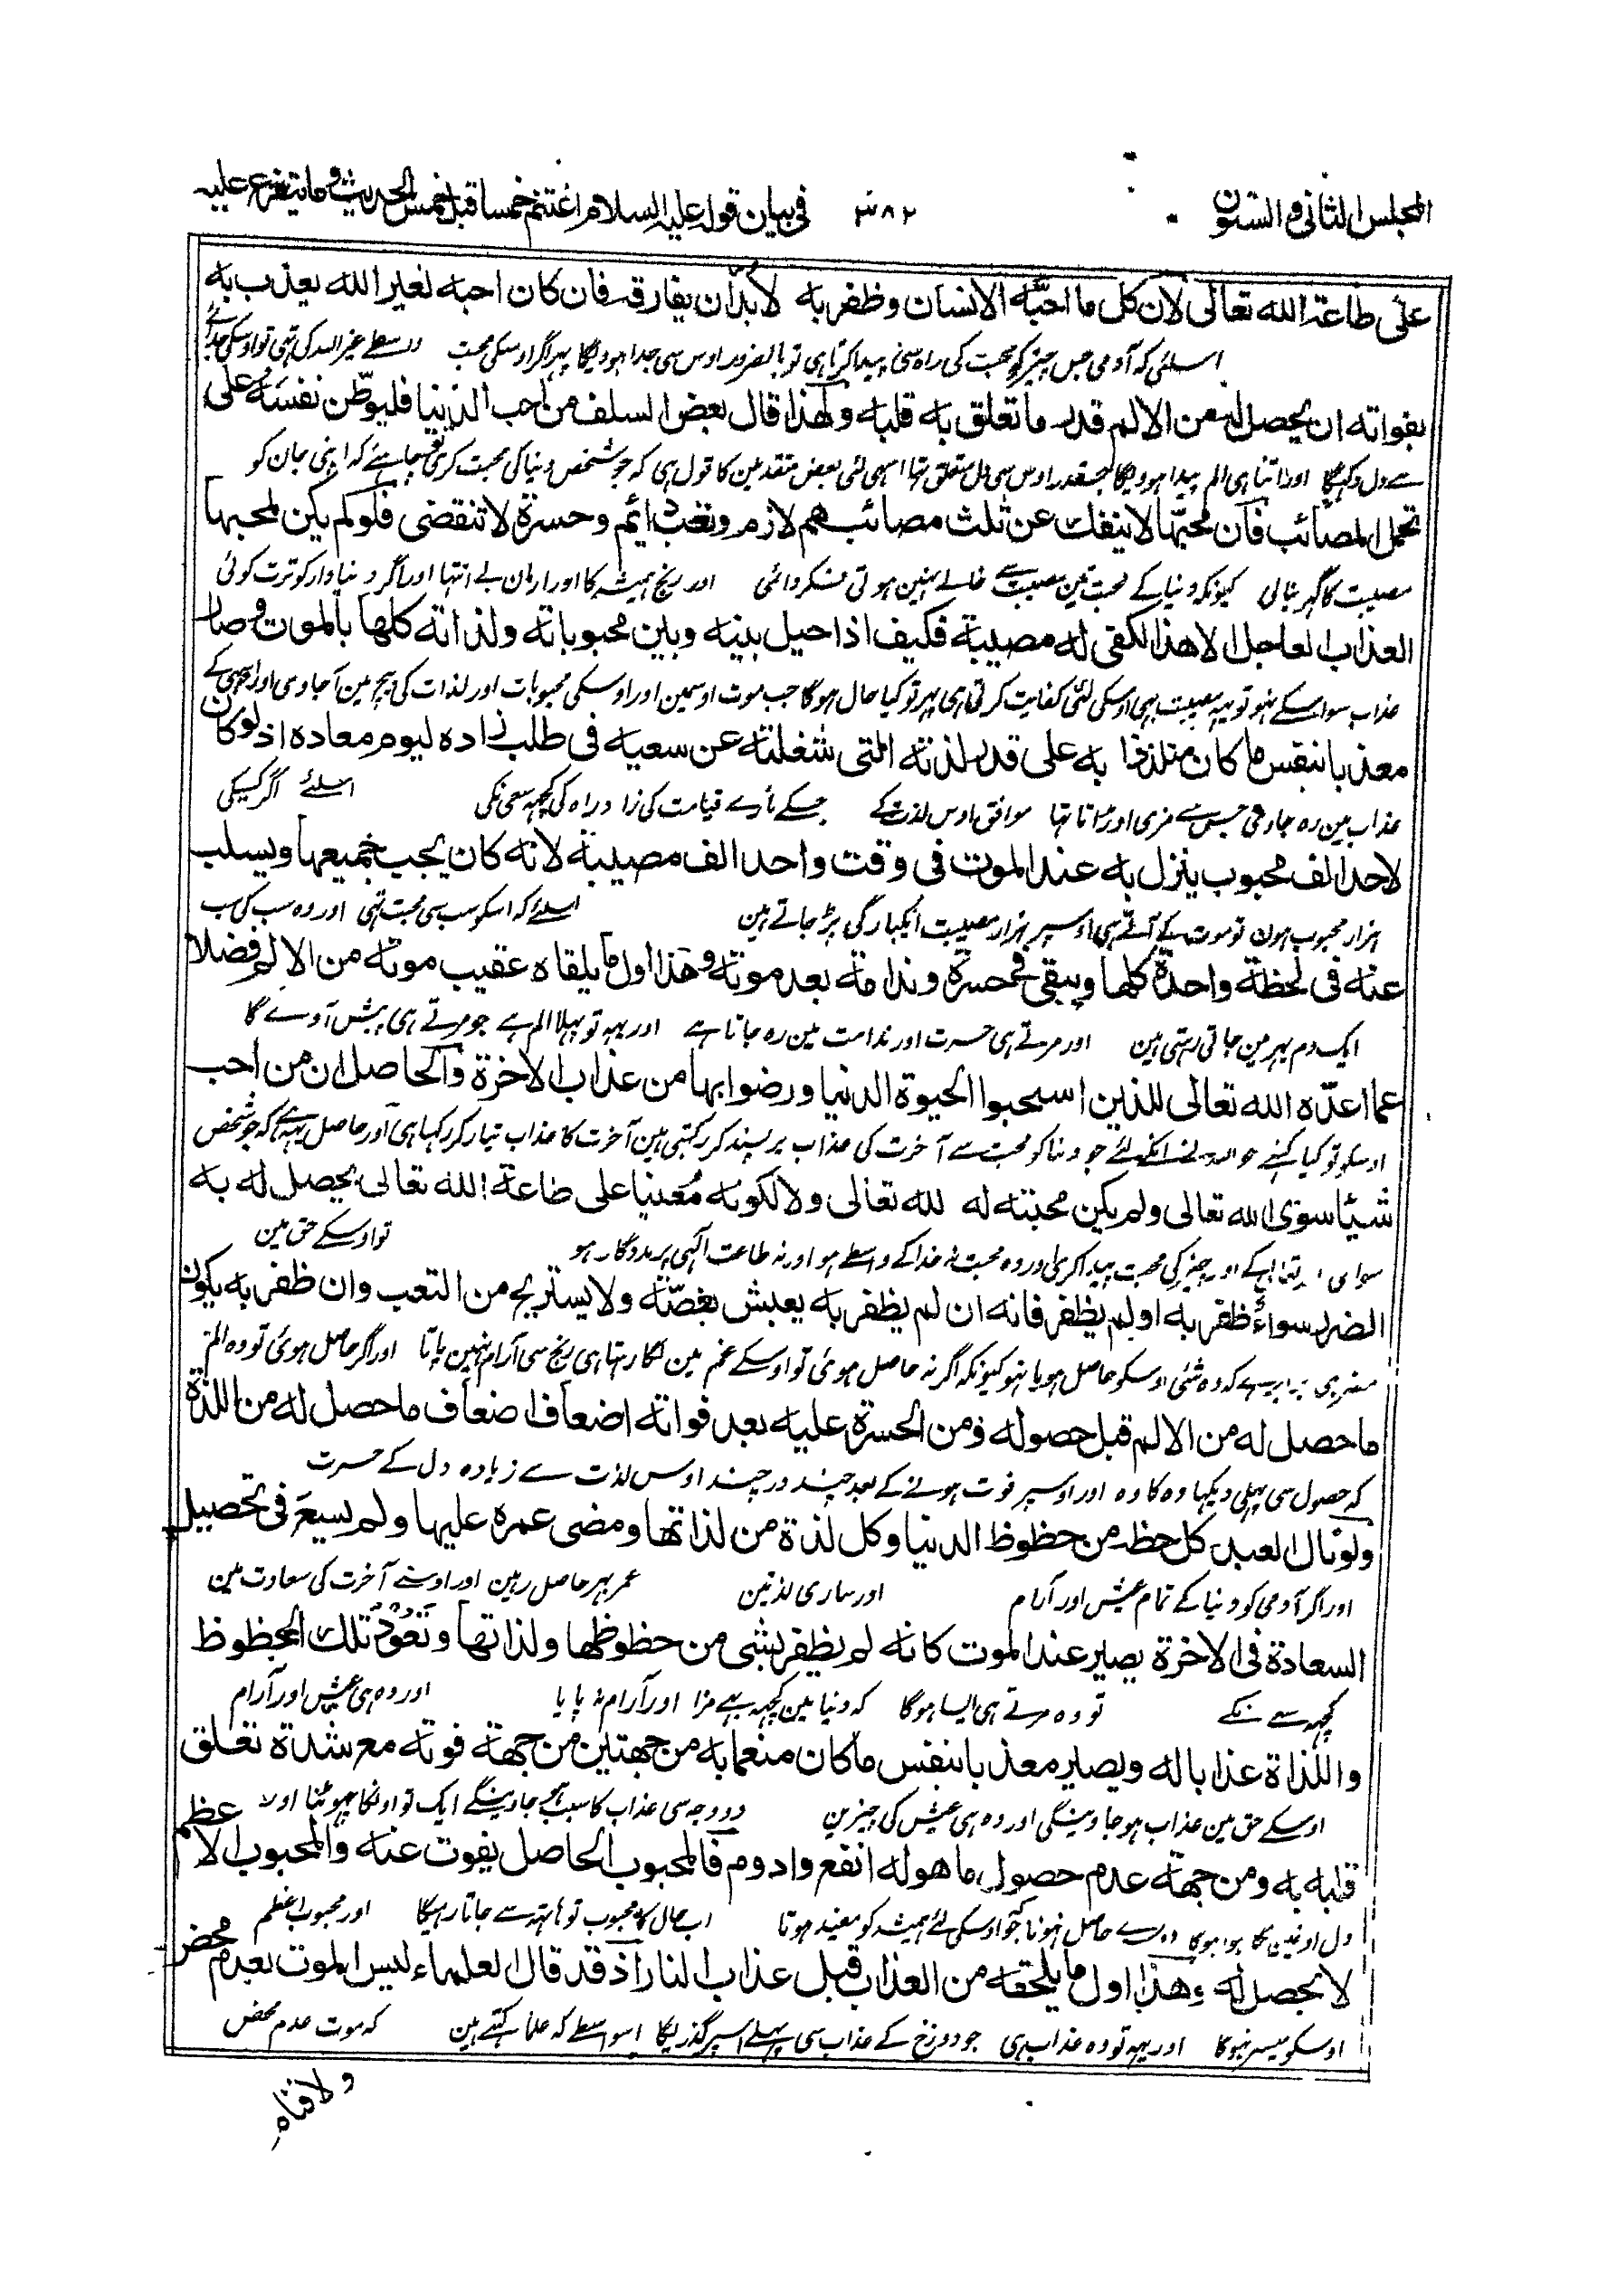 المجلس الثانی والستون ۳۸۲ فی بیان قوله علیه السلام اغتنم خمسا قبل خمس الحدیث وما یتفرع علیه
علی طاعة الله تعالی لان کل ما احبّه الانسان وظفر به لابد ان یفارقه فان کان احبه لغیر الله یعذب به
اسلئی که آدمی جس چیز کو محبت کی راه سی پیدا کرتا هی تو بالضرور اوس سی جدا هوویگا پهر اگر اوسکی محبت واسطے غیر الله کی تهی تو اوسکی
بفواته ان یحصل له من الالم قدر ما تعلق به قلبه ولهذا قال بعض السلف من احب الدنیا فلیوطّن نفسه علی
سے دل دکهیگا اور اتنا هی الم پیدا هوویگا جسقدر اوس سی دل متعلق تها اسی لئی بعض متقدمین کا قول هی که جو شخص دنیا کی محبت کری تو چاهئے که اپنی جان کو
تحمل المصائب فان محبّها لا ینفک عن ثلث مصائب هم لازم وتعب دائم وحسرة لا تنقضی فلو لم یکن لمحبها
مصیبت کا گهر بنالی کیونکه دنیا کے محبت تین مصیبت سے خالے نهین هوتی فکر دائمی اور رنج همیشه کا اور ارمان بے انتها اور اگر دنیا دار کو ترت کوئی
العذاب العاجل الا هذا لکفی له مصیبة فکیف اذا حیل بینه وبین محبوباته ولذاته کلها بالموت وصار
عذاب سوا اسکے نهو تو یهه مصیبت بهی اوسکی لئی کفایت کرتی هی پهر تو کیا حال هوگا جب موت اوسمین اور اوسکی محبوبات اور لذات کی بیچ مین آجاوی اور اوسی کے
معذبا بنفس ما کان متلذذا به علی قدر لذته التی شغلته عن سعیه فی طلب زاده لیوم معاده اذ لو کان
عذاب مین ره جاوی جس سے مزی اوڑاتا تها موافق اوس لذت کے جسکے مارے قیامت کی زاد راه کی کچهه سعی نکی اسلئے اگر کسیکی
لاحد الف محبوب ینزل به عند الموت فی وقت واحد الف مصیبة لانه کان یحب جمیعها ویسلب
هزار محبوب هون تو موت کے آتے هی اوسپر هزار مصیبت ایکبارگی پڑ جاتے هین اسلئے که اسکو سب سی محبت تهی اور وه سب کی سب
عنه فی لحظة واحدة کلها ویبقی فی حسرة وندامة بعد موته وهذا اول ما یلقاه عقیب موته من الالم فضلا
ایک دم بهر مین جاتی رهتی هین اور مرتے هی حسرت اور ندامت مین ره جاتا هے اور یهه تو پهلا الم هے جو مرتے هی پیش آوے گا
عما اعدّه الله تعالی للذین استحبوا الحیوة الدنیا ورضوا بها من عذاب الاخرة والحاصل ان من احب
اوسکو تو کیا کهنے جو الله نے انکے لئے جو دنیا کو محبت سے آخرت کی عذاب پر پسند کر رکهتی هین آخرت کا عذاب تیار کر رکها هی اور حاصل یهه هے که جو شخص
شیئا سوی الله تعالی ولم یکن محبته له لله تعالی ولا لکونه معینا علی طاعة الله تعالی یحصل له به
سوای الله تعالی کے اور چیز کی محبت پیدا کرلی اور وه محبت نه خدا کے واسطے هو اور نه طاعت الهی پر مددگار هو تو اوسکے حق مین
الضرر سواء ظفر به او لم یظفر فانه ان لم یظفر به یعیش بغصّته ولا یستریح من التعب وان ظفر به یکون
مضر هی برابر هے که وه شئی اوسکو حاصل هو یا نهو کیونکه اگر نه حاصل هوئی تو اوسکے غم مین لگا رهتا هی رنج سی آرام نهین پاتا اور اگر حاصل هوئی تو وه الم
ما حصل له من الالم قبل حصوله ومن الحسرة علیه بعد فواته اضعاف اضعاف ما حصل له من اللذة
که حصول سی پهلی دیکها وه کا وه اور اوسپر فوت هونے کے بعد چند در چند اوس لذت سے زیاده دل کے حسرت
ولو نال العبد کل حظ من حظوظ الدنیا وکل لذة من لذاتها ومضی عمره علیها ولم یسع فی تحصیل
اور اگر آدمی کو دنیا کے تمام عیش اور آرام اور ساری لذتین عمر بهر حاصل رهین اور اوسنے آخرت کی سعادت مین
السعادة فی الاخرة یصیر عند الموت کانه لم یظفر بشی من حظوظها ولذاتها وتعود تلک الحظوظ
کچهه سے نکے تو وه مرتے هی ایسا هوگا که دنیا مین کچهه بهے مزا اور آرام نه پایا اور وه هی عیش اور آرام
واللذاة عذابا له ویصیر معذبا بنفس ما کان منعما به من جهتین من جهة فوته مع شدة تعلق
اوسکے حق مین عذاب هو جاوینگی اور وه هی عیش کی چیزین دو وجه سی عذاب کا سبب هو جاوینگے ایک تو اونکا چهوٹنا اور
قلبه به ومن جهة عدم حصول ما هو له انفع وادوم فالمحبوب الحاصل یفوت عنه والمحبوب الاعظم
دل اونمین لگا هوا هوگا دوسرے حاصل نهونا جو اوسکی لئے همیشه کو مفید هوتا اب حال کا محبوب تو هاتهه سے جاتا رهیگا اور محبوب اعظم
لا یحصل له وهذا اول ما یلحقه من العذاب قبل عذاب النار اذ قد قال العلماء لیس الموت بعدم محض
اوسکو میسر نهوگا اور یهه تو وه عذاب هی جو دوزخ کے عذاب سی پهلے اسپر گذریگا اسواسطے که علما کهتے هین که موت عدم محض
ولا فناء